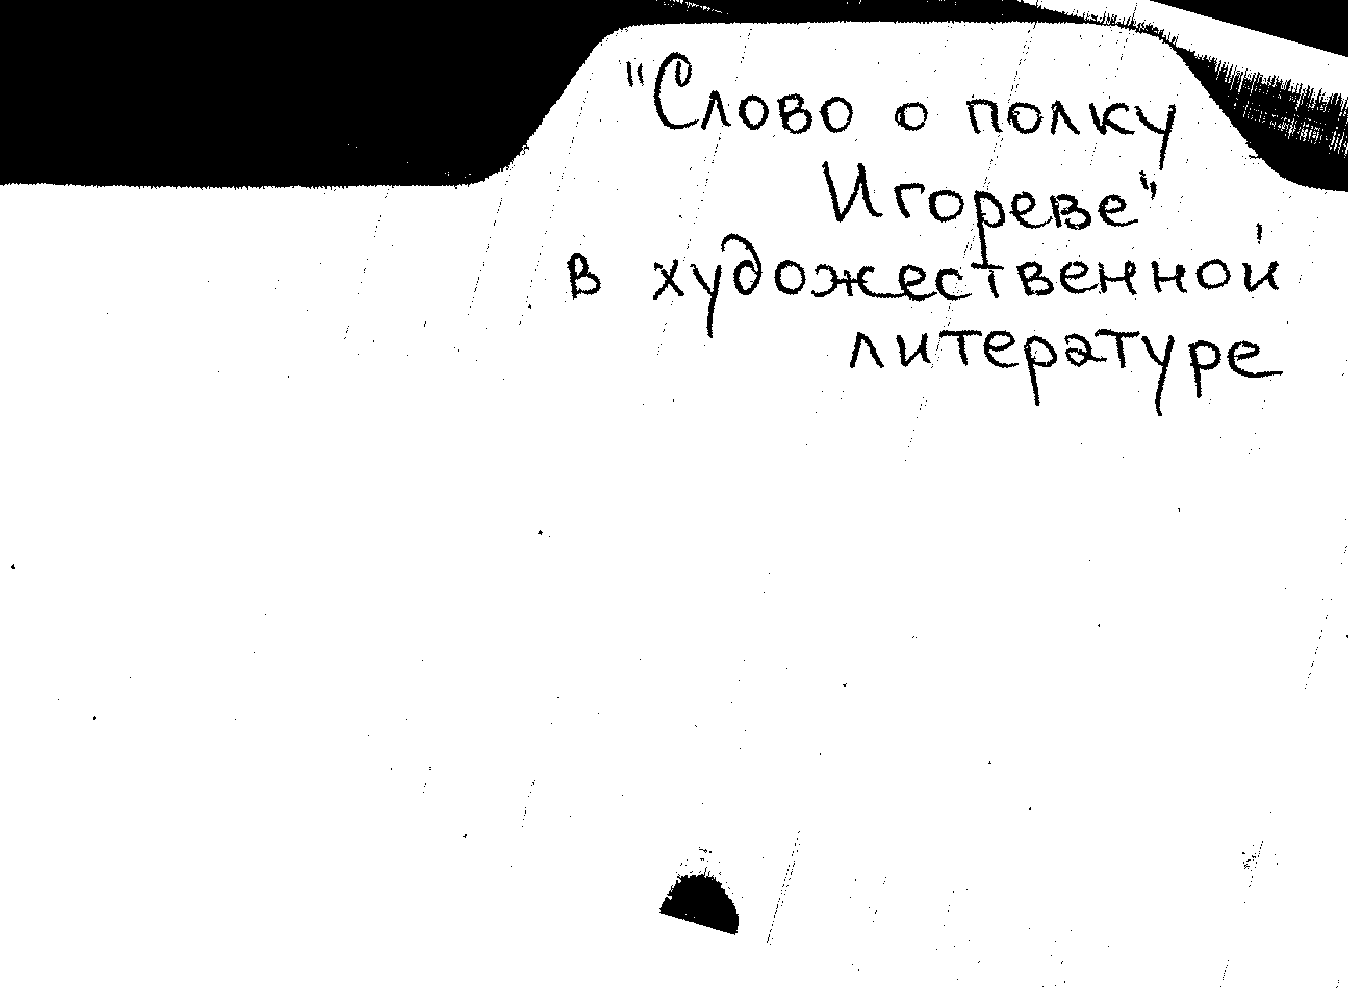 "Слово о полку
Игореве"
в художественной
литературе